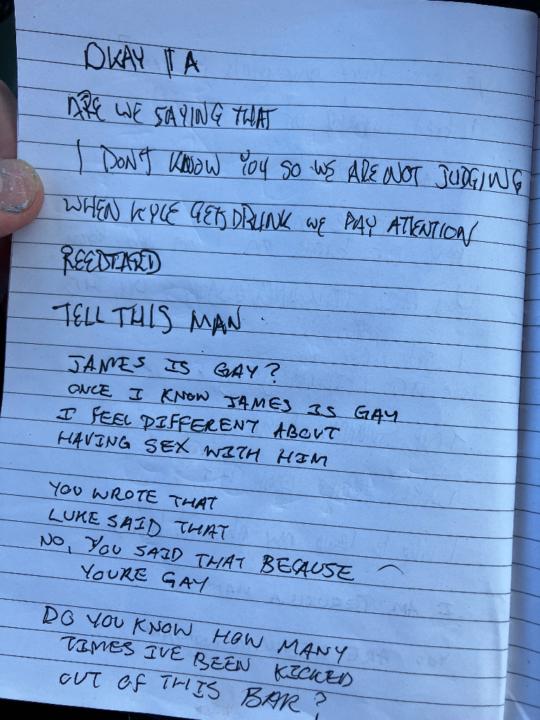 OKAY IIA
ARE WE SAYING THAT
I DON'T KNOW YOU SO WE ARE NOT JUDGING
WHEN KYLE GETS DRUNK WE PAY ATTENTION
REEDTARD
TELL THIS MAN
JAMES IS GAY?
ONCE I KNOW JAMES IS GAY
I FEEL DIFFERENT ABOUT
HAVING SEX WITH HIM
YOU WROTE THAT
LUKE SAID THAT
NO, YOU SAID THAT BECAUSE
YOURE GAY
DO YOU KNOW HOW MANY
TIMES IVE BEEN KICKED
OUT OF THIS BAR?